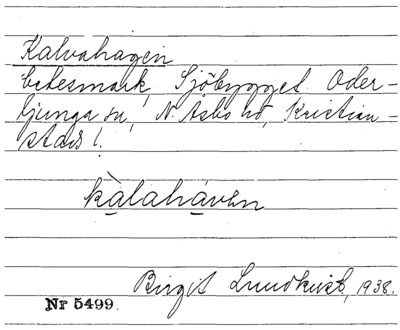 Kalvahagen
betesmark, Sjöbygget Oder-
ljunga sn, N. Asbo hd, Kristian-
stads l.
kàlahávēn
Birgit Lundkvist, 1938.
Nr 5499.